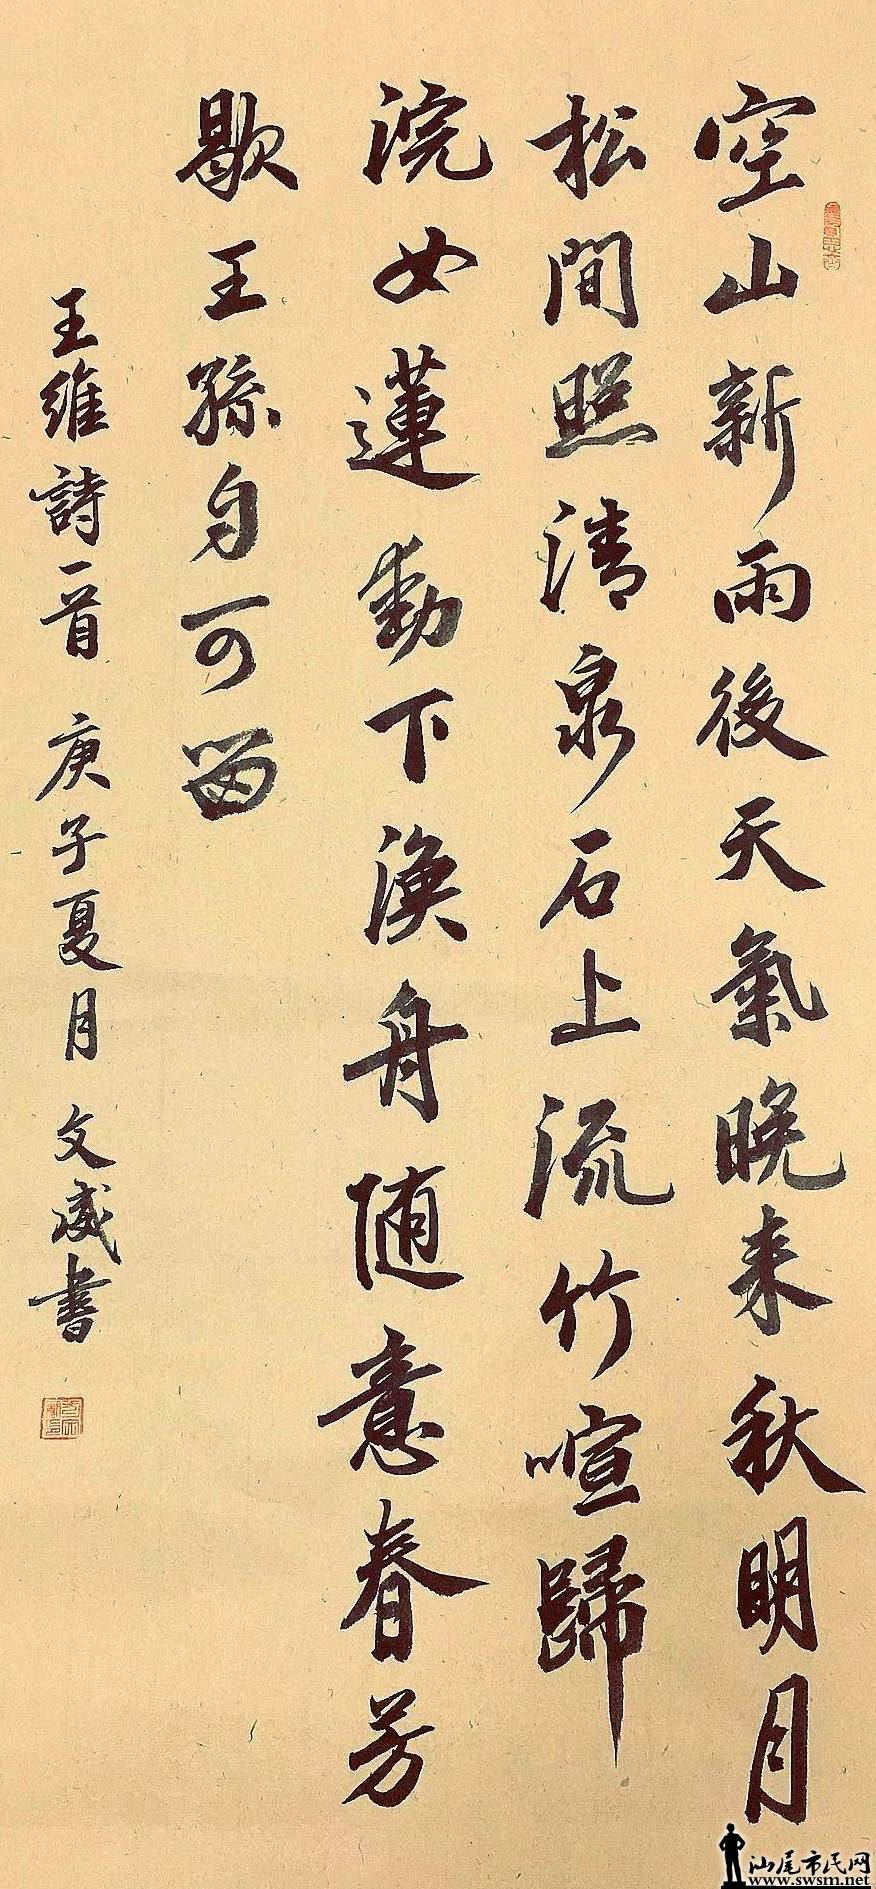 空山新雨後天氣晚来秋明月
松間照清泉石上流竹喧歸
浣女蓮動下渔舟随意春芳
歇王孫自可留
王維詩一首 庚子夏月 文威書
汕尾市民网
www.swsm.net